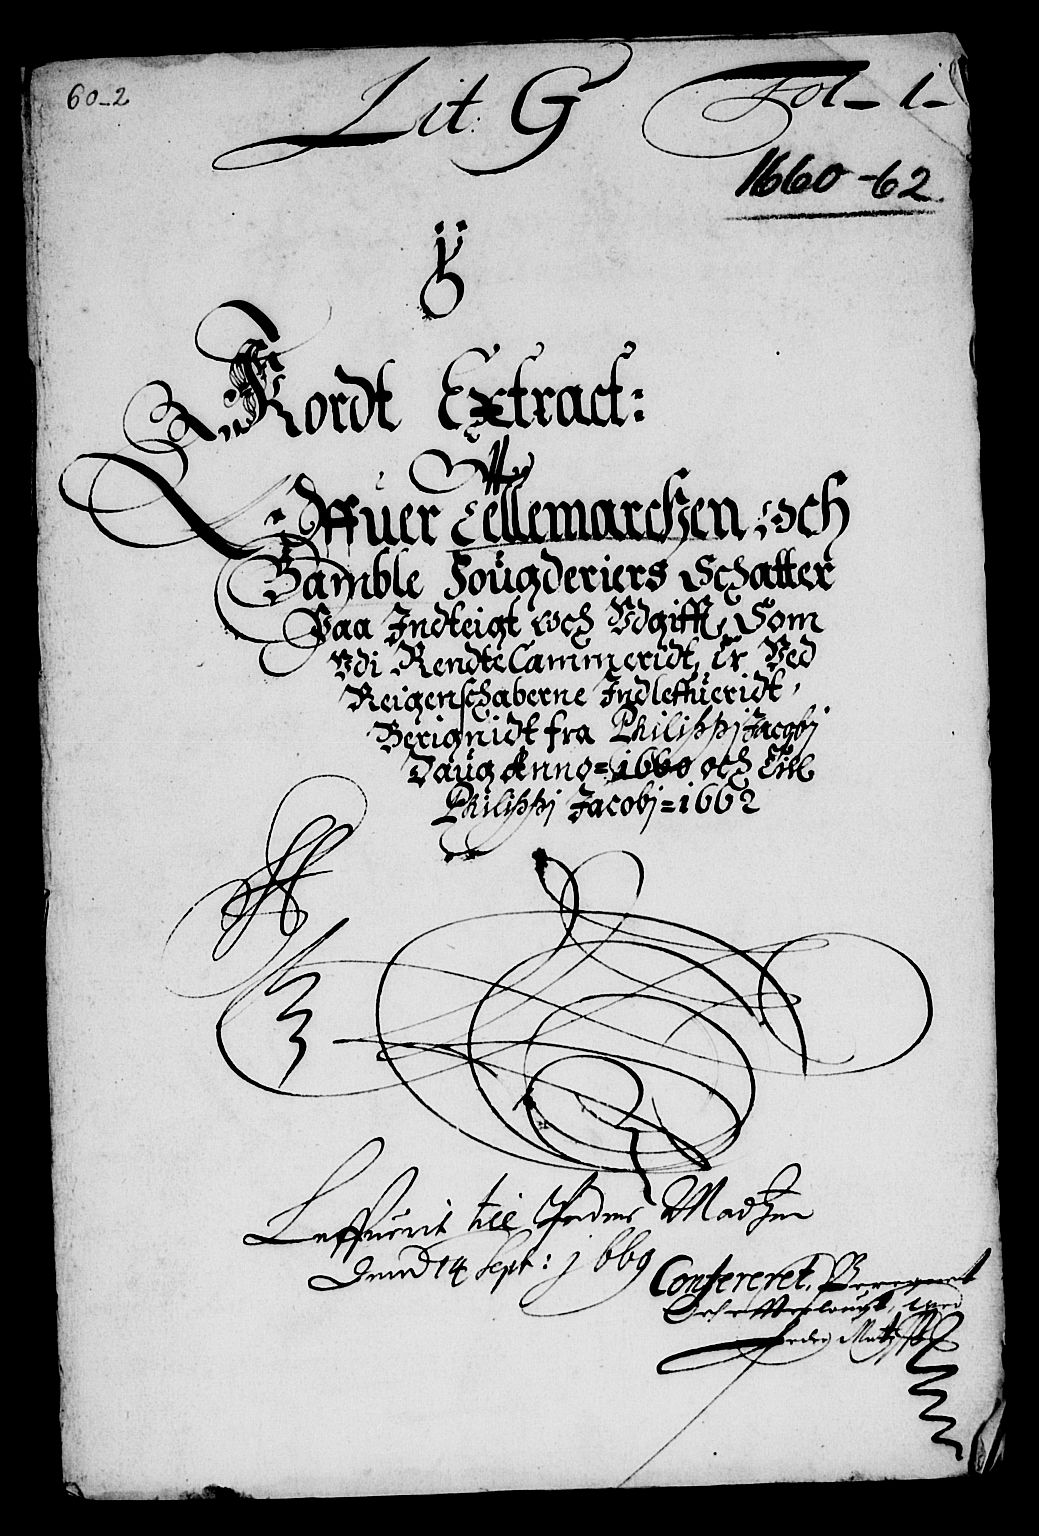 60-2
Lit: G Fol- 1-
1660-62
Kordt Extract:
Offuer Tellemarchen och
Bamble Fougderiers Schatter
Paa Indteigt och Vdgifft, Som
Vdi RendteCammeridt, Er Ved
Reigenschaberne Indleffueridt,
Berignidt fra Philippj Jacobj
Daug Anno=1660 och Till
Philippj Jacobj=1662
Leffuerit till Peder Madtzen
14 Sept: 1669
Confereret, Beregnet
Och offuerlangt, med
Peder